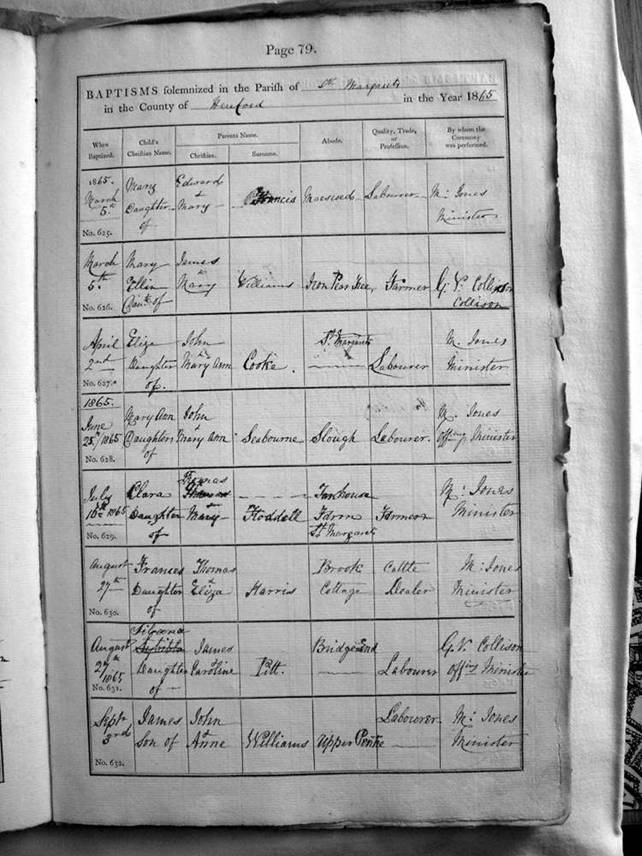 Page 79.
BAPTISMS solemnized in the Parish of St. Margarets
in the County of Hereford in the Year 1865
When Baptized.
Child's Christian Name.
Parents Name.
Christian.
Surname.
Abode.
Quality, Trade, or Profession.
By whom the Ceremony was performed.
1865. March 5th No. 625.
Mary Daughter of
Edward & Mary
Francis
Labourer
M. Jones Minister
March 5th No. 626.
Mary Ellin Daur. of
James & Mary
Williams
Iron Pear Tree
Farmer
G. V. Collison Collison
April 2nd No. 627.
Eliza Daughter of.
John & Mary Ann
Cooke.
St. Margarets
Labourer
M. Jones Minister
1865. June 25th/1865 No. 628.
Mary Ann Daughter of
John & Mary Ann
Seabourne
Slough
Labourer.
M. Jones Offg Minister
July 16th 1865 No. 629.
Clara Daughter of
Thomas & Mary
Hoddell
Tanhouse Farm St. Margarets
Farmer
M. Jones Minister
August 27th No. 630.
Frances Daughter of
Thomas & Eliza
Harris
Brook Cottage
Cattle Dealer
M. Jones Minister
August 27th 1865 No. 631.
Daughter of
James & Caroline
Pitt.
Bridge End
Labourer
G. V. Collison Offg Minister
Sept. 3rd No. 632.
James Son of
John & Anne
Williams
Upper Ponke
Labourer.
M. Jones Minister